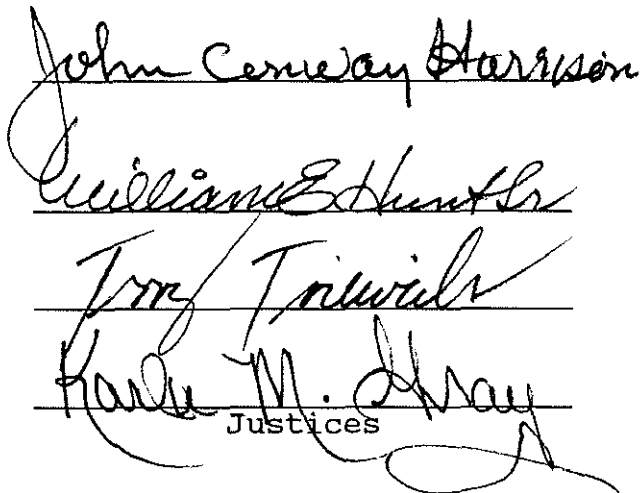 John Conway Harrison
William E Hunt Sr
Terry Trieweiler
Karla M. Gray
Justices